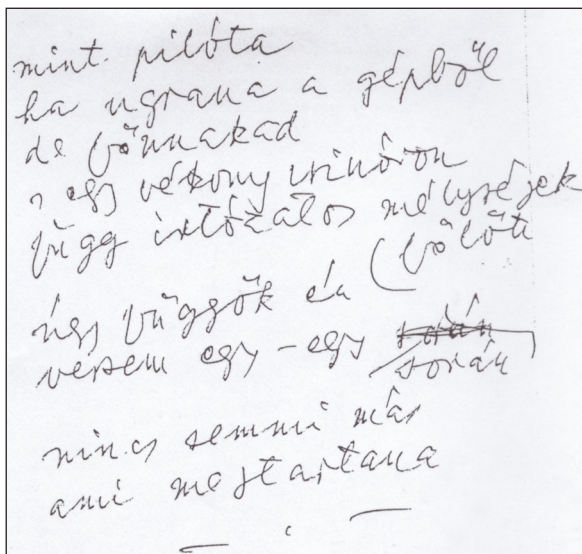 mint pilóta
ha ugrana a gépből
de fönnakad
s egy vékony zsinóron
függ irtózatos mélységek
(fölött
úgy függök én
versem egy-egy során
során
nincs semmi más
ami megtartana